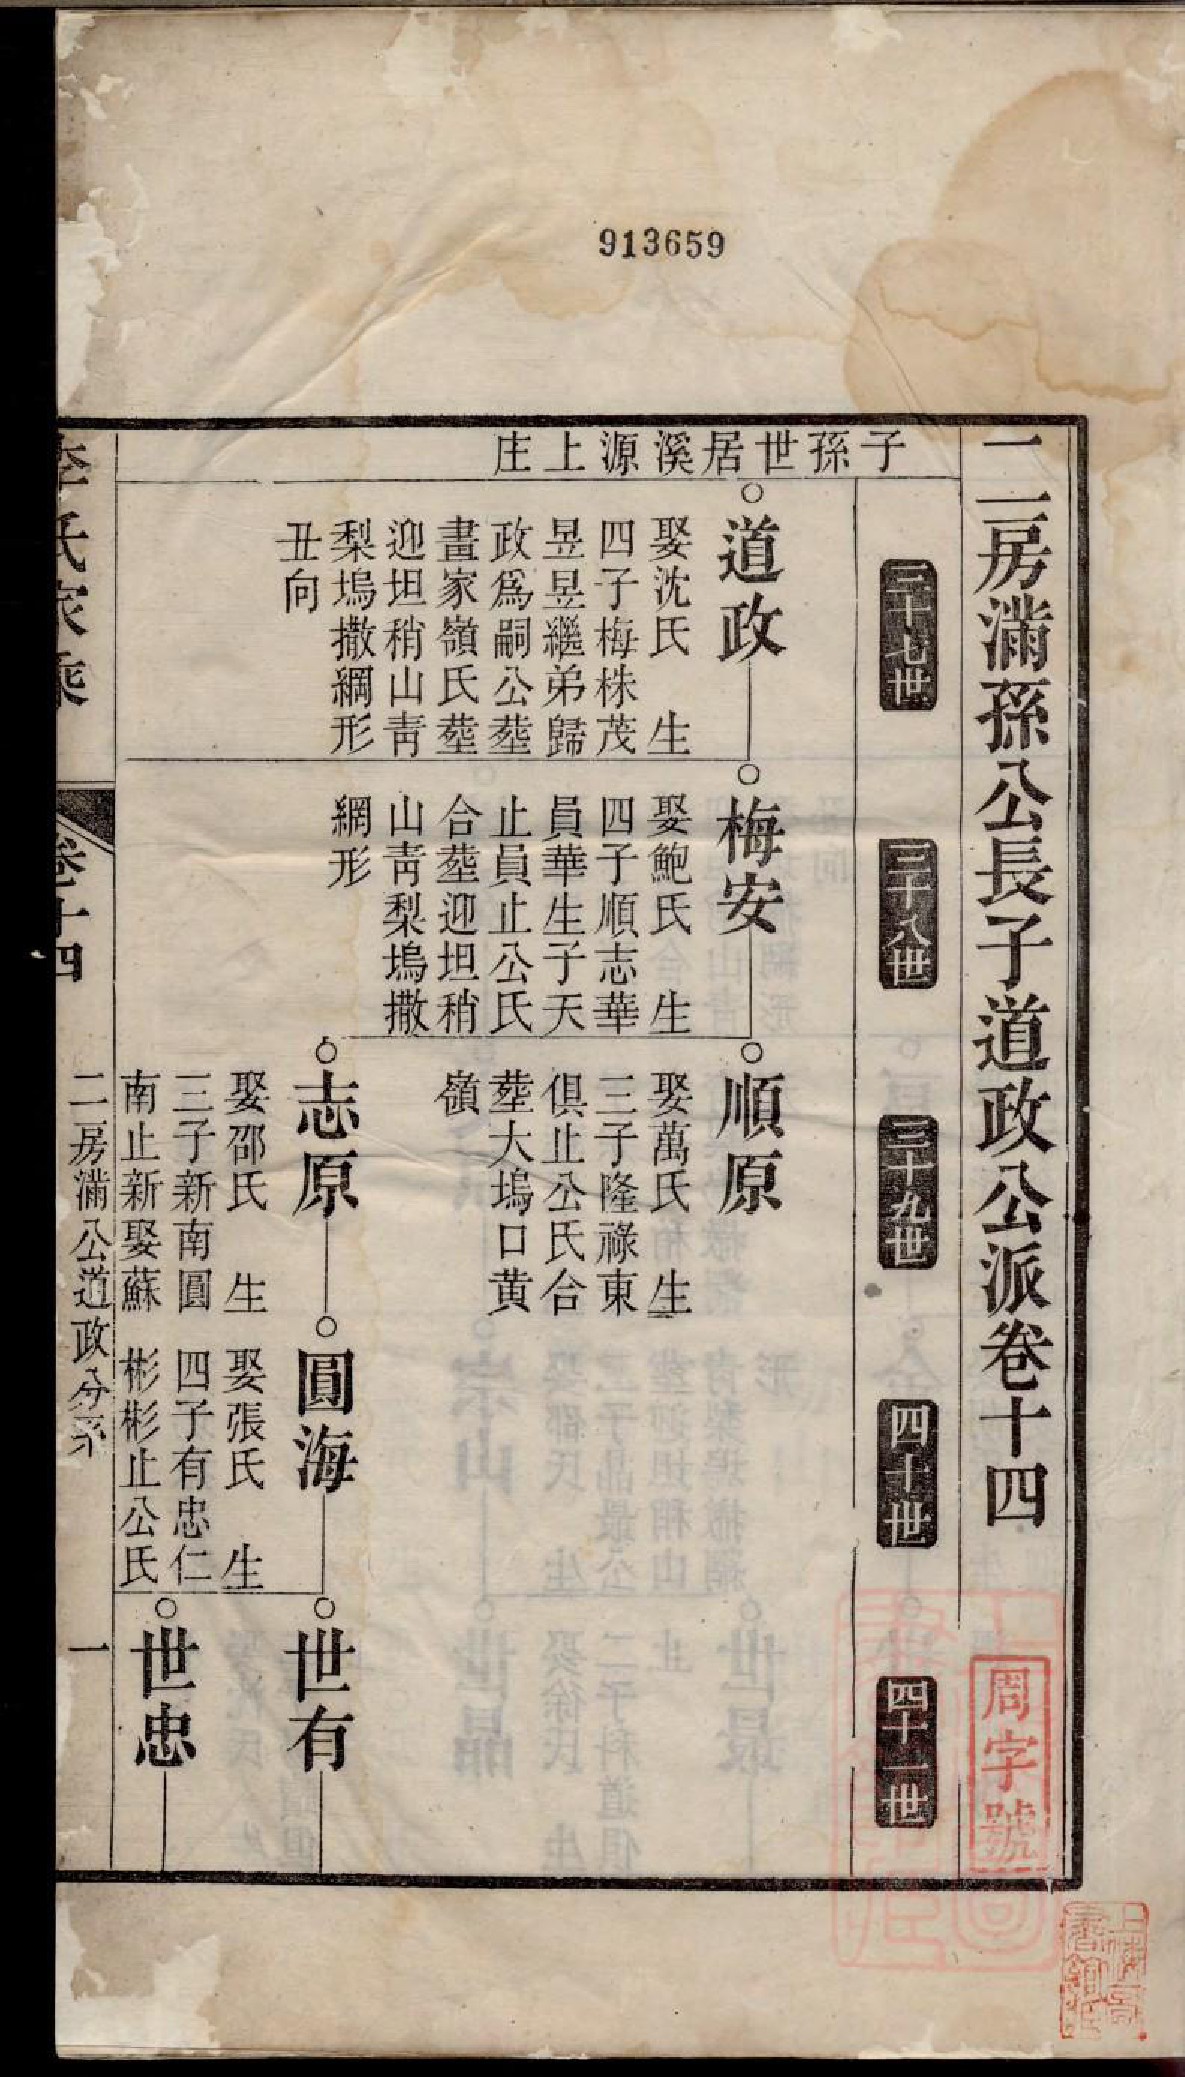 913659
二房滿孫公長子道政公派卷十四
周字號
三十七世
三十八世
三十九世
四十世
四十一世
子孫世居溪源上庄
道政
娶沈氏　生
四子梅株茂
昱昱繼弟歸
政爲嗣公塟
畫家嶺氏塟
迎坦稍山靑
梨塢撒網形
丑向
梅安
娶鮑氏　生
四子順志華
員華生子天
止員止公氏
合塟迎坦稍
山靑梨塢撒
網形
順原
娶萬氏　生
三子隆祿東
俱止公氏合
塟大塢口黄
嶺
志原
娶邵氏　生
三子新南圓
南止新娶蘇
圓海
娶張氏　生
四子有忠仁
彬彬止公氏
世有
世忠
李氏家乘
卷十四
二房滿公道政分系
一